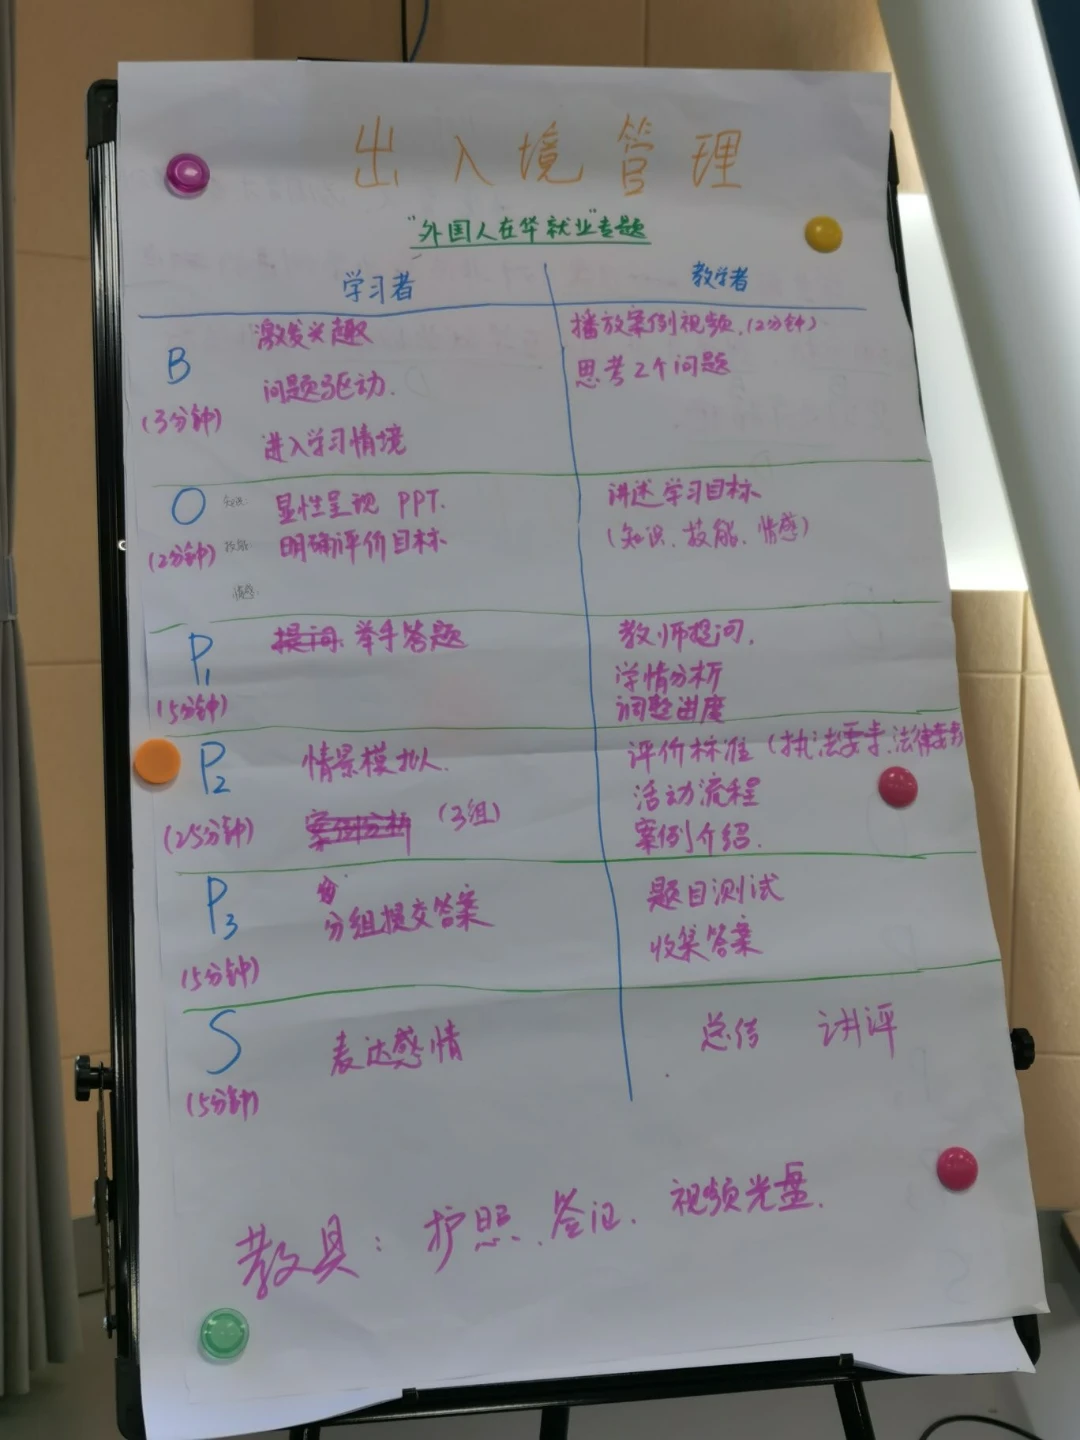 出入境管理
"外国人在华就业"专题
学习者
教学者
B
(3分钟)
激发兴趣
问题驱动.
进入学习情境
播放案例视频.(2分钟)
思考2个问题
O
(2分钟)
知识:
技能:
情感:
显性呈现 PPT.
明确评价目标
讲述学习目标
(知识、技能、情感)
P1
(5分钟)
提问. 举手答题
教师提问.
学情分析
调整进度
P2
(25分钟)
情景模拟.
案例分析 (3组)
评价标准(执法要求、法律要求)
活动流程
案例介绍.
P3
(5分钟)
分组提交答案
题目测试
收集答案
S
(5分钟)
表达感情
总结 讲评
教具: 护照、签证、视频光盘.